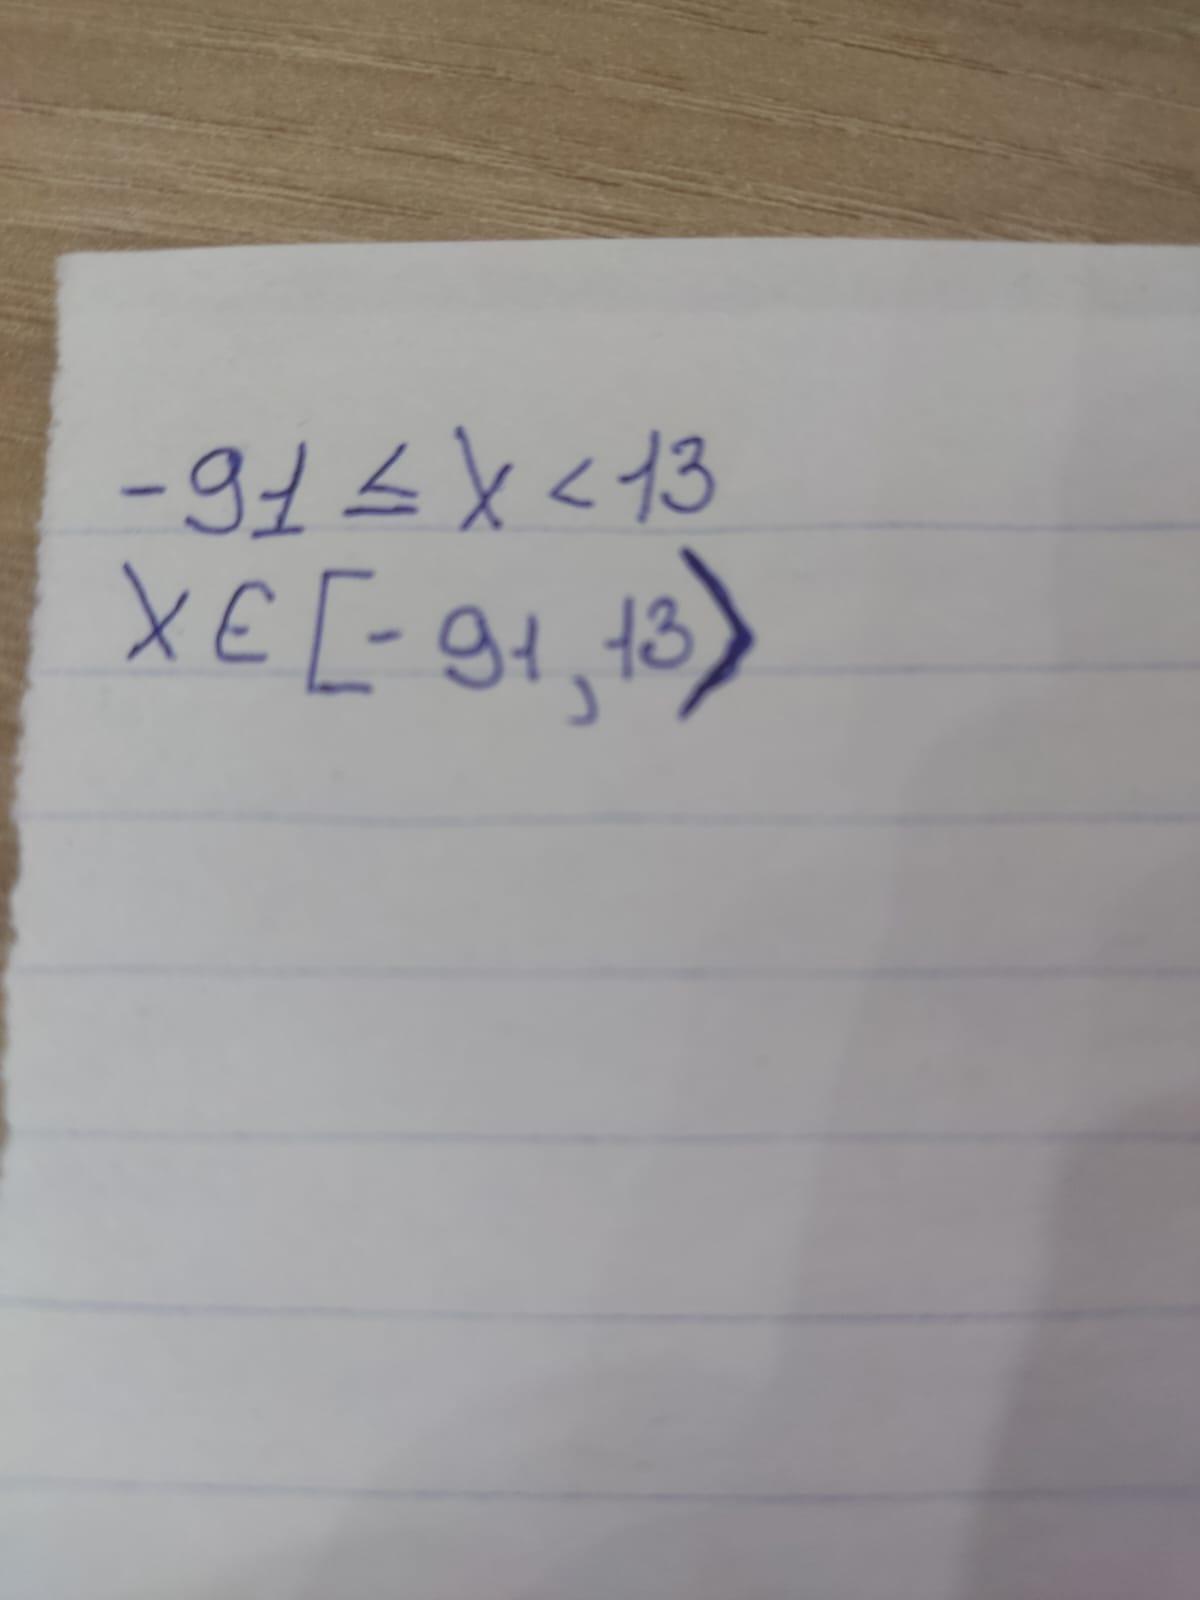 -91 ≤ x < 13
x ∈ [-91, 13⟩